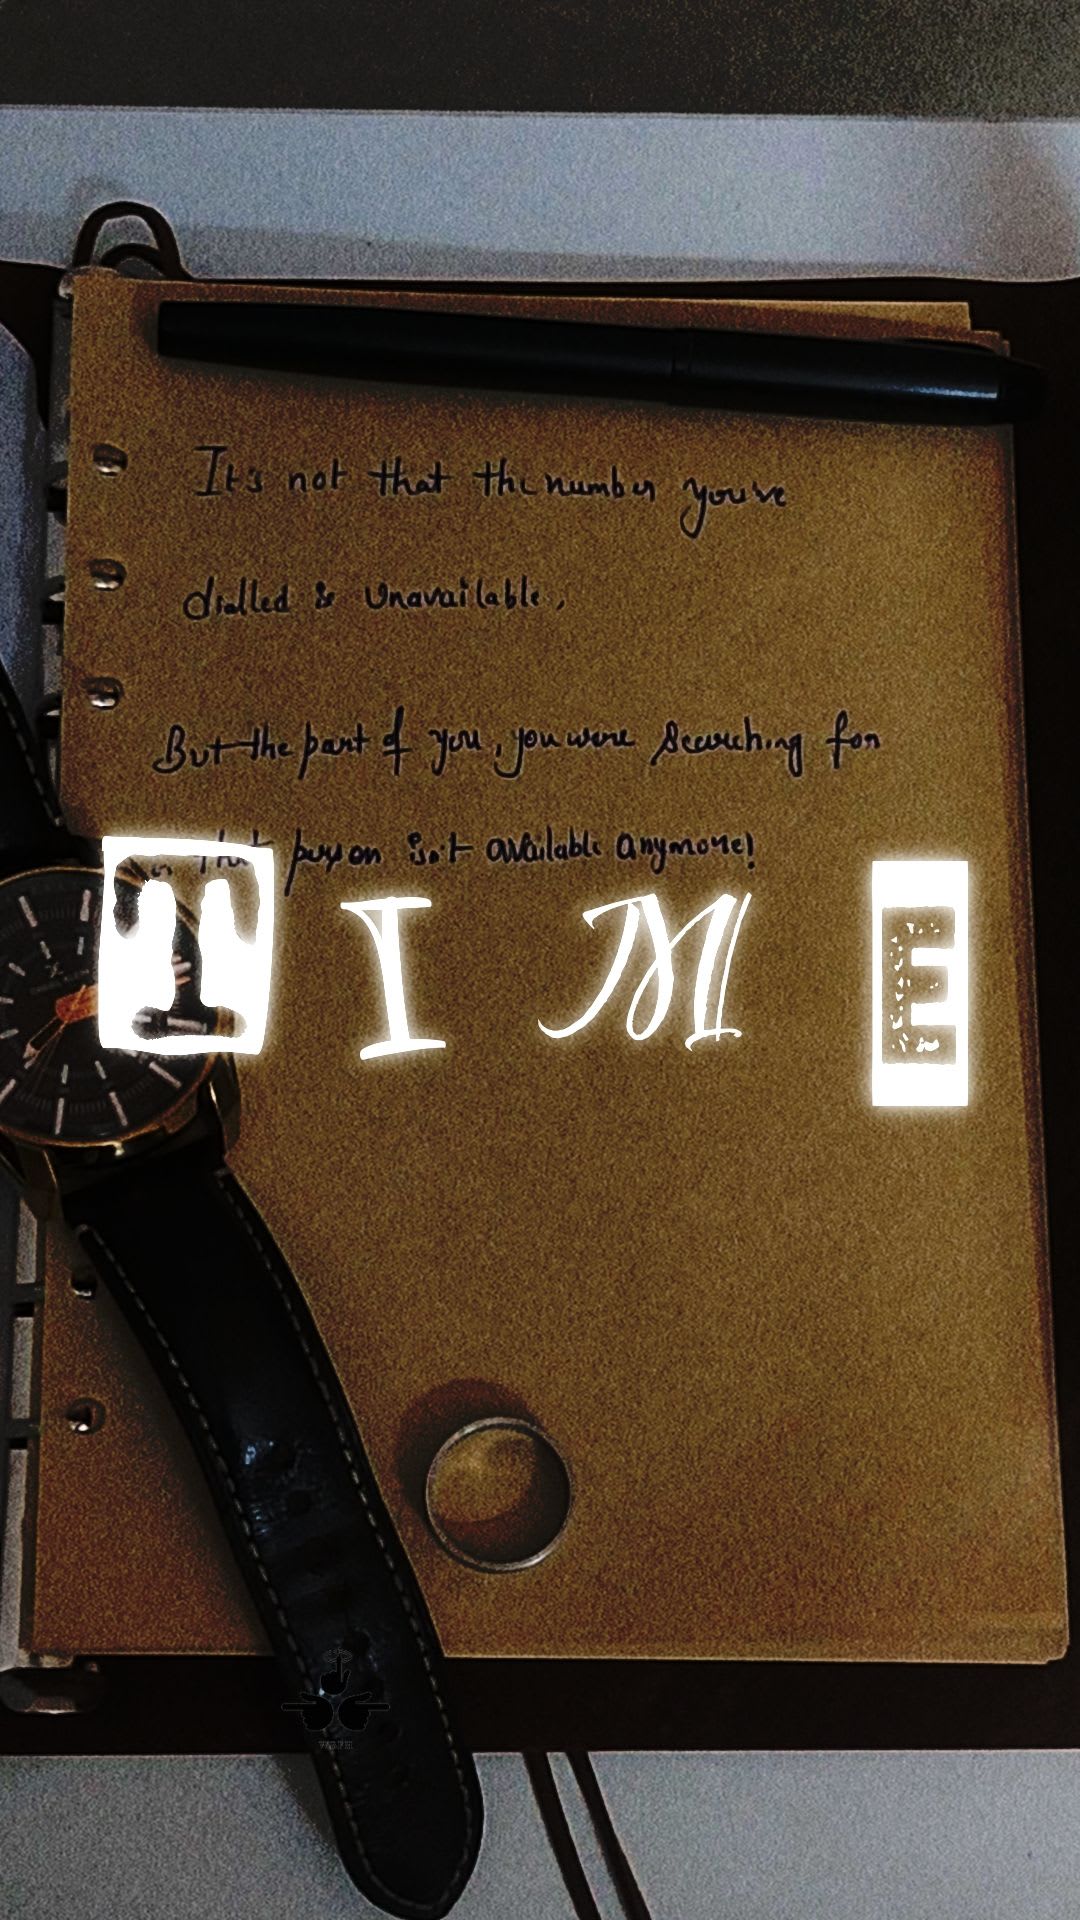 It's not that the number you've
dialled is Unavailable,
But the part of you, you were Searching for
in that person isn't available anymore!
TIME